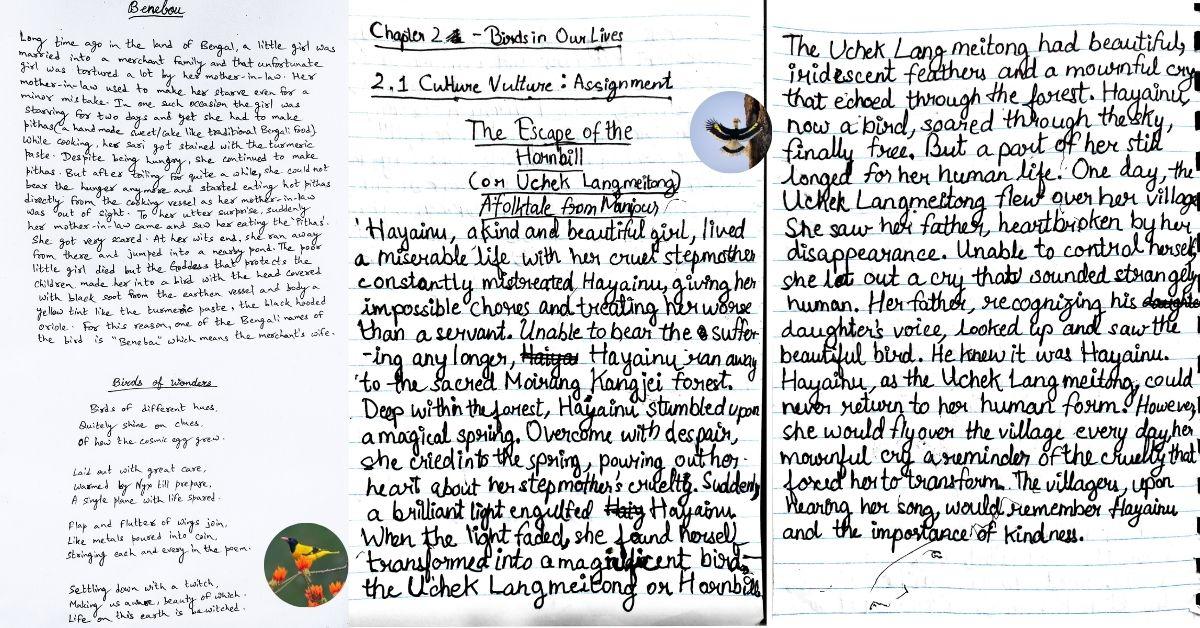 Benebou
Long time ago in the land of Bengal, a little girl was
married into a merchant family and that unfortunate
girl was tortured a lot by her mother-in-law. Her
mother-in-law used to make her starve even for a
minor mistake. In one such occasion the girl was
starving for two days and yet she had to make
pithas (a handmade sweet/cake like traditional Bengali God)
While cooking, her sari got stained with the turmeric
paste. Despite being hungry, she continued to make
pithas. But after toiling for quite a while, she could not
bear the hunger anymore and started eating hot pithas
directly from the cooking vessel as her mother-in-law
was out of sight. To her utter surprise, suddenly
her mother-in-law came and saw her eating the 'Pithas'.
She got very scared. At her wits end, she ran away
from there and jumped into a nearby pond. The poor
little girl died but the Goddess that protects the
children made her into a bird with the head covered
with black soot from the earthen vessel and body a
yellow tint like the turmeric paste, the black hooded
oriole. For this reason, one of the Bengali names of
the bird is "Benebou" which means the merchant's wife.
Birds of wonders
Birds of different hues,
Quitely shine on clues,
Of how the cosmic egg grew.
Laid out with great care,
Warmed by Nyx till prepare,
A single plane with life spared.
Flap and flutter of wings join,
Like metals poured into coin,
Stringing each and every in the poem.
Settling down with a twitch,
Making us aware, beauty of which
Life on this earth is bewitched.
Chapter 2 - Birds in Our Lives
2.1 Culture Vulture : Assignment
The Escape of the
Hornbill
(or Uchek Langmeitong)
A folktale from Manipur
Hayainu, a kind and beautiful girl, lived
a miserable life with her cruel stepmother
constantly mistreated Hayainu, giving her
impossible chores and treating her worse
than a servant. Unable to bear the suffer-
-ing any longer, Hayainu ran away
to the sacred Moirang Kangjei forest.
Deep within the forest, Hayainu stumbled upon
a magical spring. Overcome with despair,
she cried into the spring, pouring out her
heart about her stepmother's cruelty. Suddenly
a brilliant light engulfed Hayainu.
When the light faded, she found herself
transformed into a magnificent bird,
the Uchek Langmeitong or Hornbill.
The Uchek Langmeitong had beautiful,
iridescent feathers and a mournful cry
that echoed through the forest. Hayainu
now a bird, soared through the sky,
finally free. But a part of her still
longed for her human life. One day, the
Uchek Langmeitong flew over her village
She saw her father, heartbroken by her
disappearance. Unable to control herself,
she let out a cry that sounded strangely
human. Her father, recognizing his
daughter's voice, looked up and saw the
beautiful bird. He knew it was Hayainu.
Hayainu, as the Uchek Langmeitong, could
never return to her human form. However,
she would fly over the village every day, her
mournful cry a reminder of the cruelty that
forced her to transform. The villagers, upon
hearing her song, would remember Hayainu
and the importance of kindness.